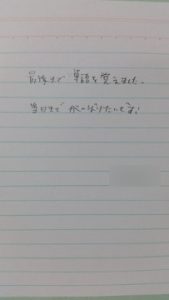 最後まで 単語を覚えました。
当日まで がんばりたいです!